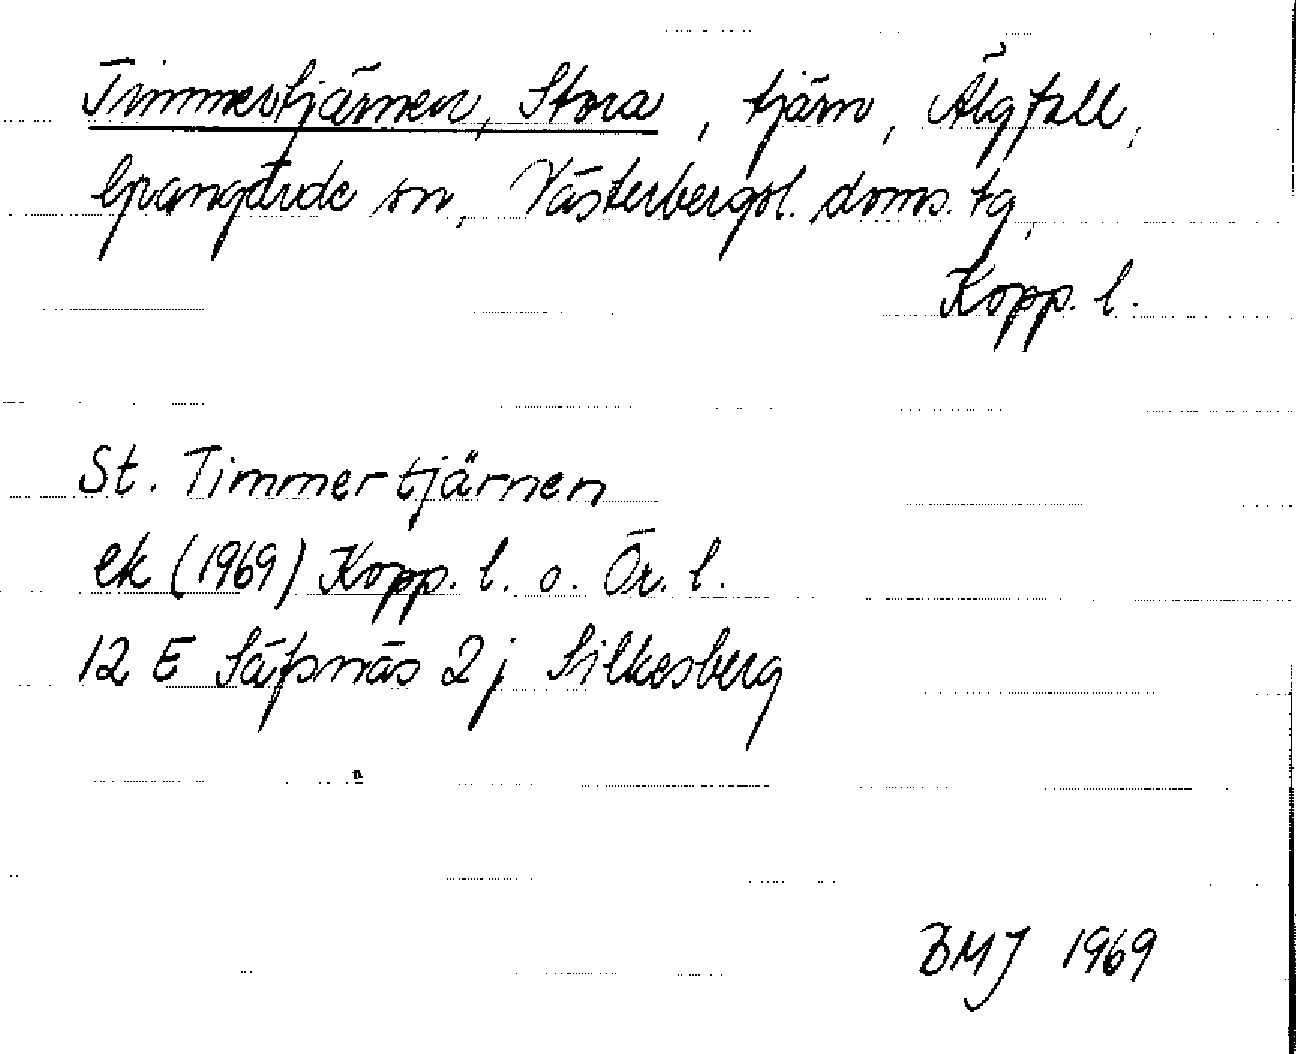 Timmertjärnen, Stora, tjärn, Älgfall,
Grangärde sn, Västerbergsl. doms. tg,
Kopp. l.
St. Timmertjärnen
ek (1969) Kopp. l. o. Ör. l.
12 E Säfsnäs 2 j Silkesberg
BMJ 1969